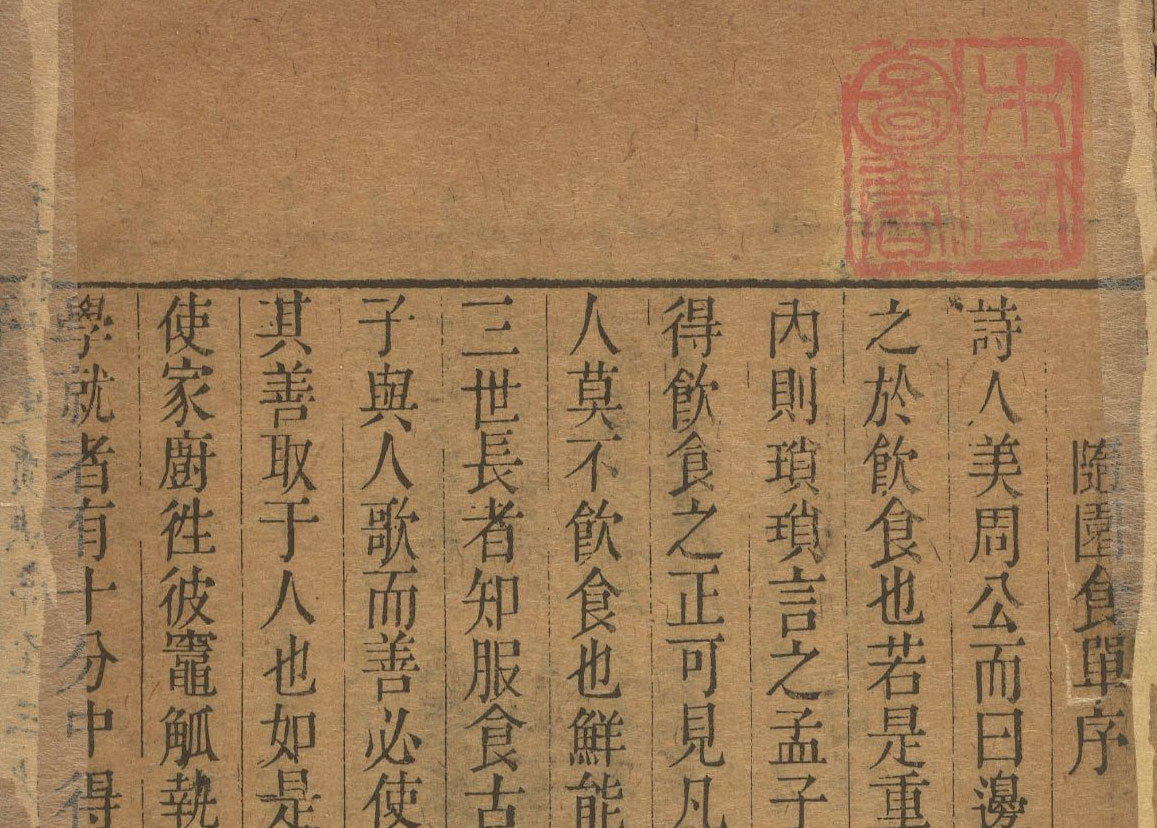 木堂圖書
隨園食單序
詩人美周公而曰邊
之於飲食也若是重
內則瑣瑣言之孟子
得飲食之正可見凡
人莫不飲食也鮮能
三世長者知服食古
子與人歌而善必使
其善取于人也如是
使家廚徃彼竈觚執
學就者有十分中得